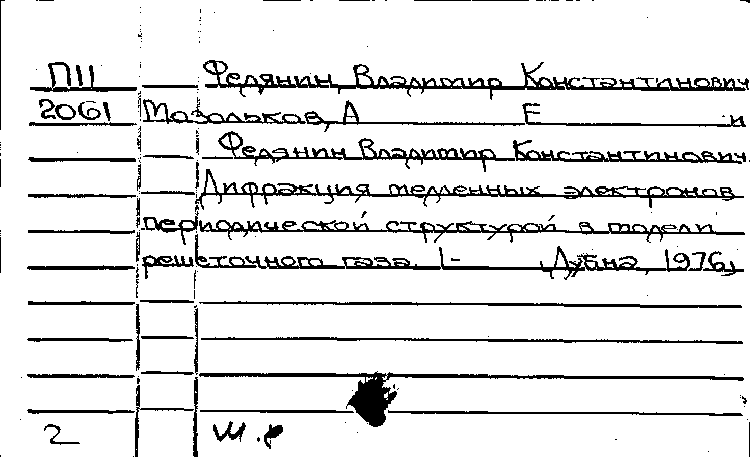 П11 Федянин, Владимир Константинович
2061 Мазольков, А Е и
Федянин Владимир Константинович.
Дифракция медленных электронов
периодической структурой в модели
решеточного газа. 1- Дубна, 1976,
2 Ш. р